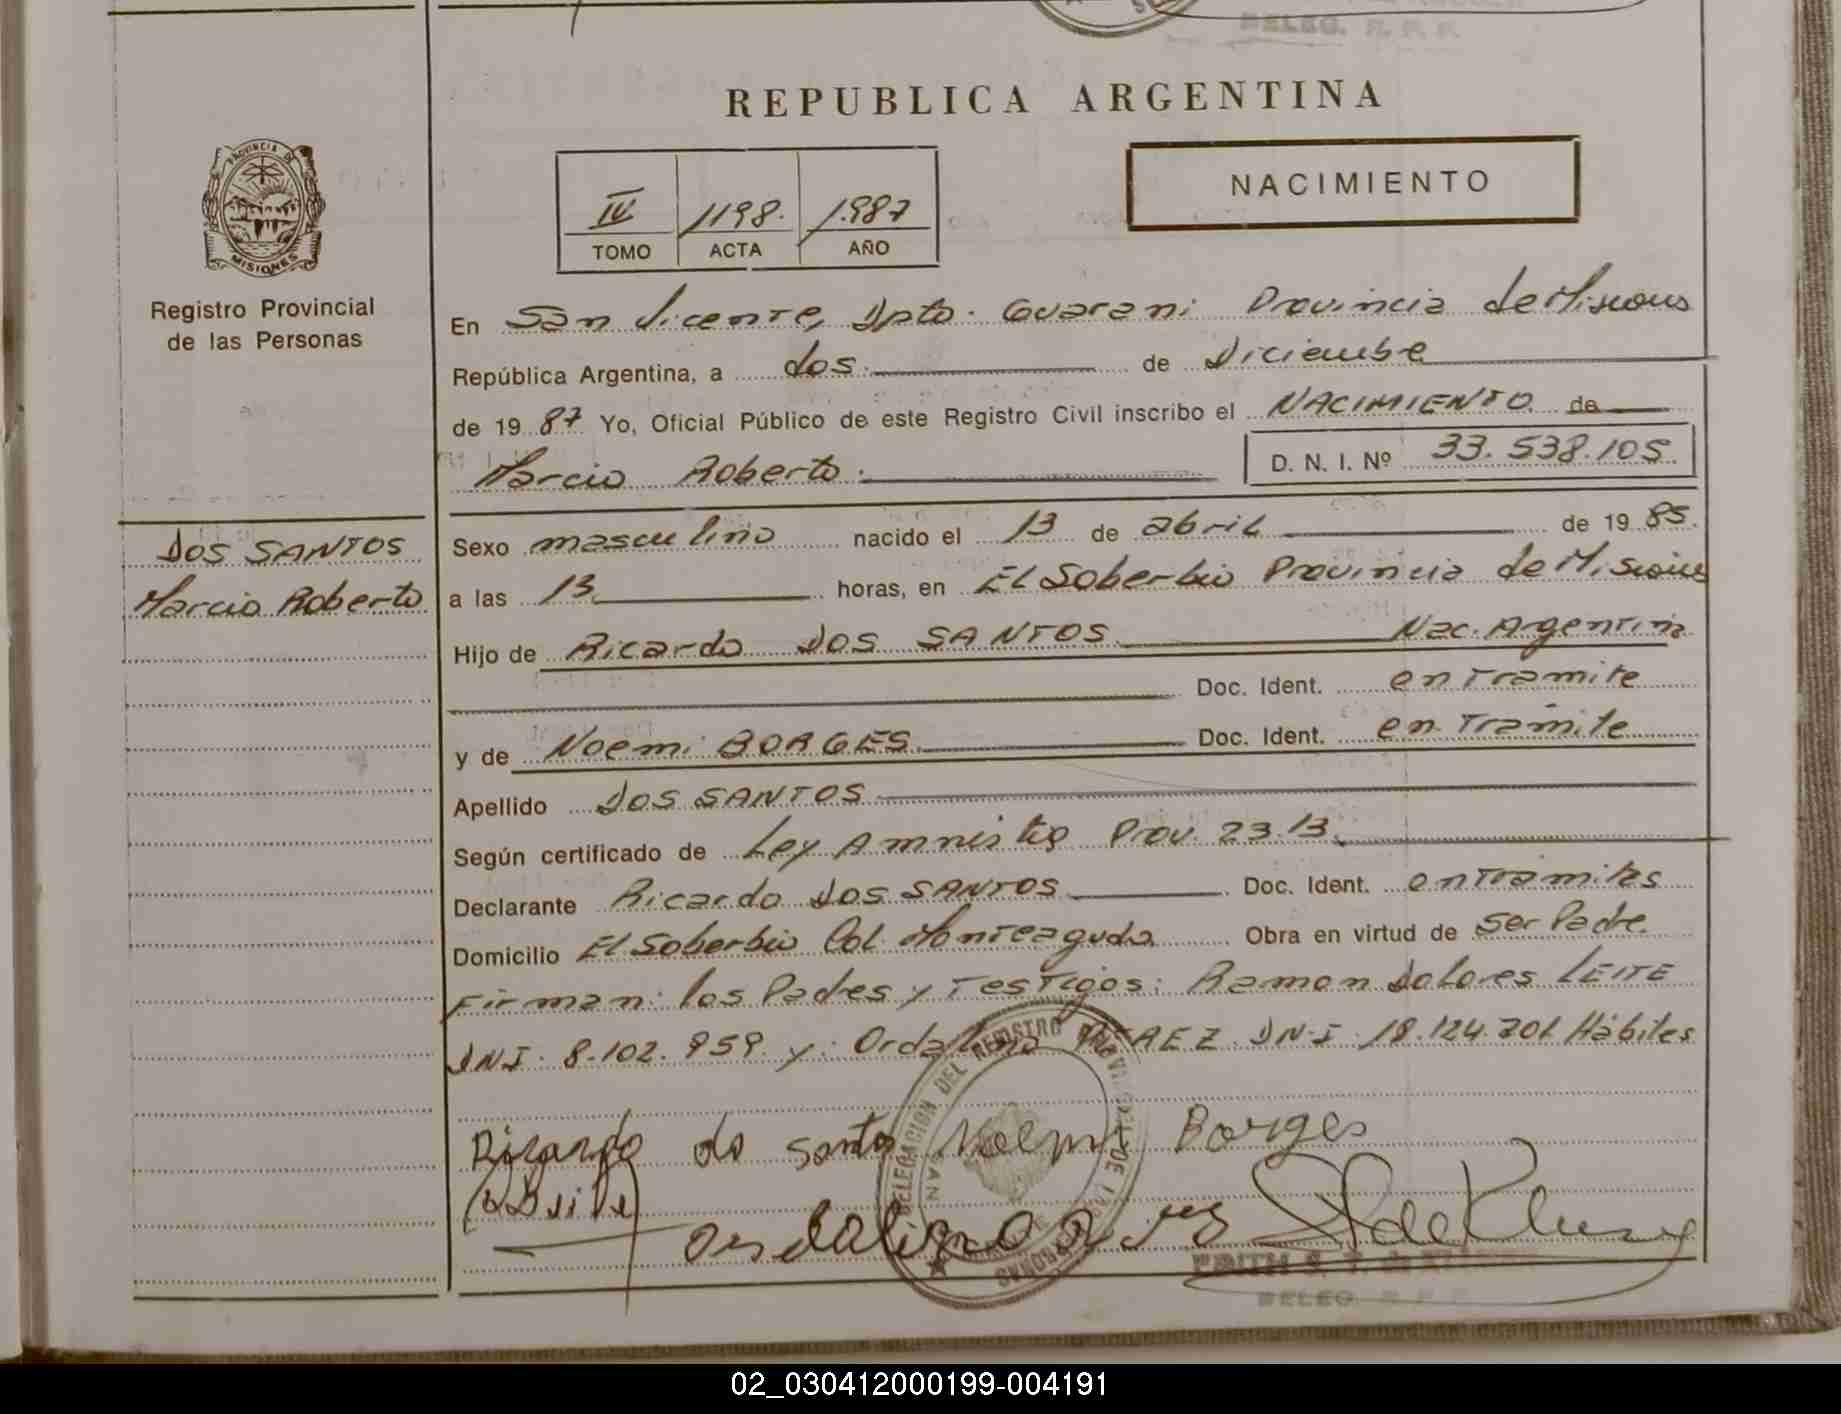 DELEG. R. P. P.
REPUBLICA ARGENTINA
NACIMIENTO
IV 1198. 1.987
TOMO ACTA AÑO
PROVINCIA DE
MISIONES
Registro Provincial
de las Personas
En San Vicente, Dpto. Guarani Provincia de Misiones
República Argentina, a dos. de Diciembre
de 19 87 Yo, Oficial Público de este Registro Civil inscribo el NACIMIENTO de
Marcio Roberto. D. N. I. Nº 33.538.105
DOS SANTOS
Marcio Roberto
Sexo masculino nacido el 13 de abril de 19 85.
a las 13 horas, en El Soberbio Provincia de Misiones
Hijo de Ricardo DOS SANTOS Nac. Argentina
Doc. Ident. en tramite
y de Noemi BORGES Doc. Ident. en tramite
Apellido DOS SANTOS
Según certificado de Ley Amnistia Prov. 23.13
Declarante Ricardo DOS SANTOS Doc. Ident. en tramites
Domicilio El Soberbio Col. Monteagudo Obra en virtud de ser Padre.
Firman: los Padres y Testigos: Ramon Dolores LEITE
DNI. 8.102.959. y: DNI. 18.124.201 Hábiles
Ricardo do santo Noemi Borges
DELEGACION DEL REGISTRO
DELEG.
02_030412000199-004191